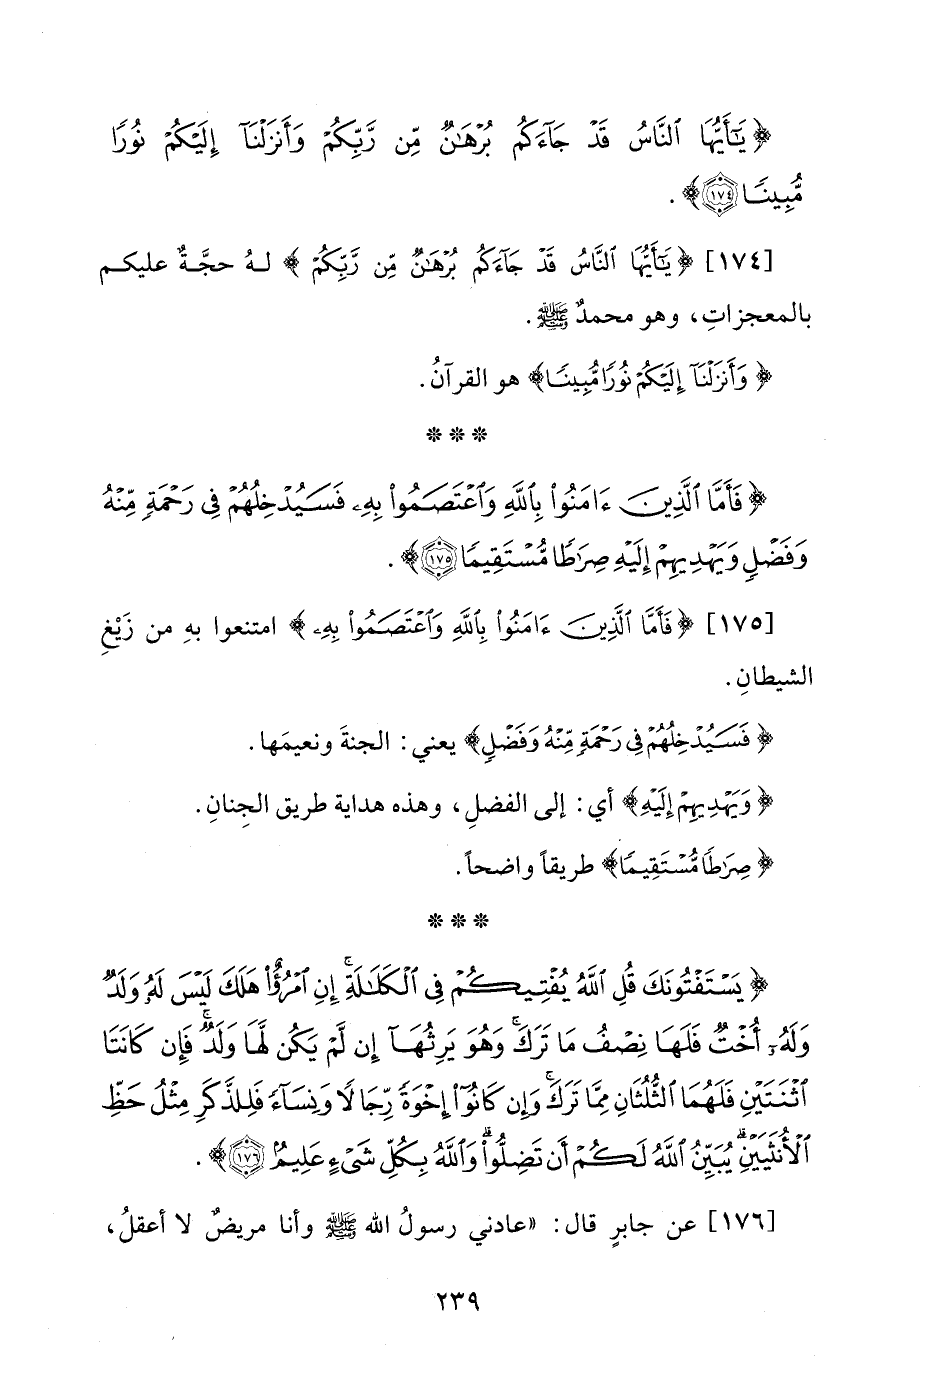 ﴿ يَٰٓأَيُّهَا ٱلنَّاسُ قَدْ جَآءَكُم بُرْهَٰنٌ مِّن رَّبِّكُمْ وَأَنزَلْنَآ إِلَيْكُمْ نُورًا
مُّبِينًا ﴿١٧٤﴾ ﴾ .
[١٧٤] ﴿ يَٰٓأَيُّهَا ٱلنَّاسُ قَدْ جَآءَكُم بُرْهَٰنٌ مِّن رَّبِّكُمْ ﴾ لهُ حجَّةٌ عليكم
بالمعجزاتِ، وهو محمدٌ ﷺ .
﴿ وَأَنزَلْنَآ إِلَيْكُمْ نُورًا مُّبِينًا ﴾ هو القرآنُ .
*** 
﴿ فَأَمَّا ٱلَّذِينَ ءَامَنُوا۟ بِٱللَّهِ وَٱعْتَصَمُوا۟ بِهِۦ فَسَيُدْخِلُهُمْ فِى رَحْمَةٍ مِّنْهُ
وَفَضْلٍ وَيَهْدِيهِمْ إِلَيْهِ صِرَٰطًا مُّسْتَقِيمًا ﴿١٧٥﴾ ﴾ .
[١٧٥] ﴿ فَأَمَّا ٱلَّذِينَ ءَامَنُوا۟ بِٱللَّهِ وَٱعْتَصَمُوا۟ بِهِۦ ﴾ امتنعوا بهِ من زَيْغِ
الشيطانِ .
﴿ فَسَيُدْخِلُهُمْ فِى رَحْمَةٍ مِّنْهُ وَفَضْلٍ ﴾ يعني : الجنةَ ونعيمَها .
﴿ وَيَهْدِيهِمْ إِلَيْهِ ﴾ أي : إلى الفضلِ ، وهذه هداية طريق الجِنانِ .
﴿ صِرَٰطًا مُّسْتَقِيمًا ﴾ طريقاً واضحاً .
***
﴿ يَسْتَفْتُونَكَ قُلِ ٱللَّهُ يُفْتِيكُمْ فِى ٱلْكَلَٰلَةِ ۚ إِنِ ٱمْرُؤٌا۟ هَلَكَ لَيْسَ لَهُۥ وَلَدٌ
وَلَهُۥٓ أُخْتٌ فَلَهَا نِصْفُ مَا تَرَكَ ۚ وَهُوَ يَرِثُهَآ إِن لَّمْ يَكُن لَّهَا وَلَدٌ ۚ فَإِن كَانَتَا
ٱثْنَتَيْنِ فَلَهُمَا ٱلثُّلُثَانِ مِمَّا تَرَكَ ۚ وَإِن كَانُوٓا۟ إِخْوَةً رِّجَالًا وَنِسَآءً فَلِلذَّكَرِ مِثْلُ حَظِّ
ٱلْأُنثَيَيْنِ ۗ يُبَيِّنُ ٱللَّهُ لَكُمْ أَن تَضِلُّوا۟ ۗ وَٱللَّهُ بِكُلِّ شَىْءٍ عَلِيمٌۢ ﴿١٧٦﴾ ﴾ .
[١٧٦] عن جابرٍ قال : «عادني رسولُ الله ﷺ وأنا مريضٌ لا أعقلُ ،
٢٣٩